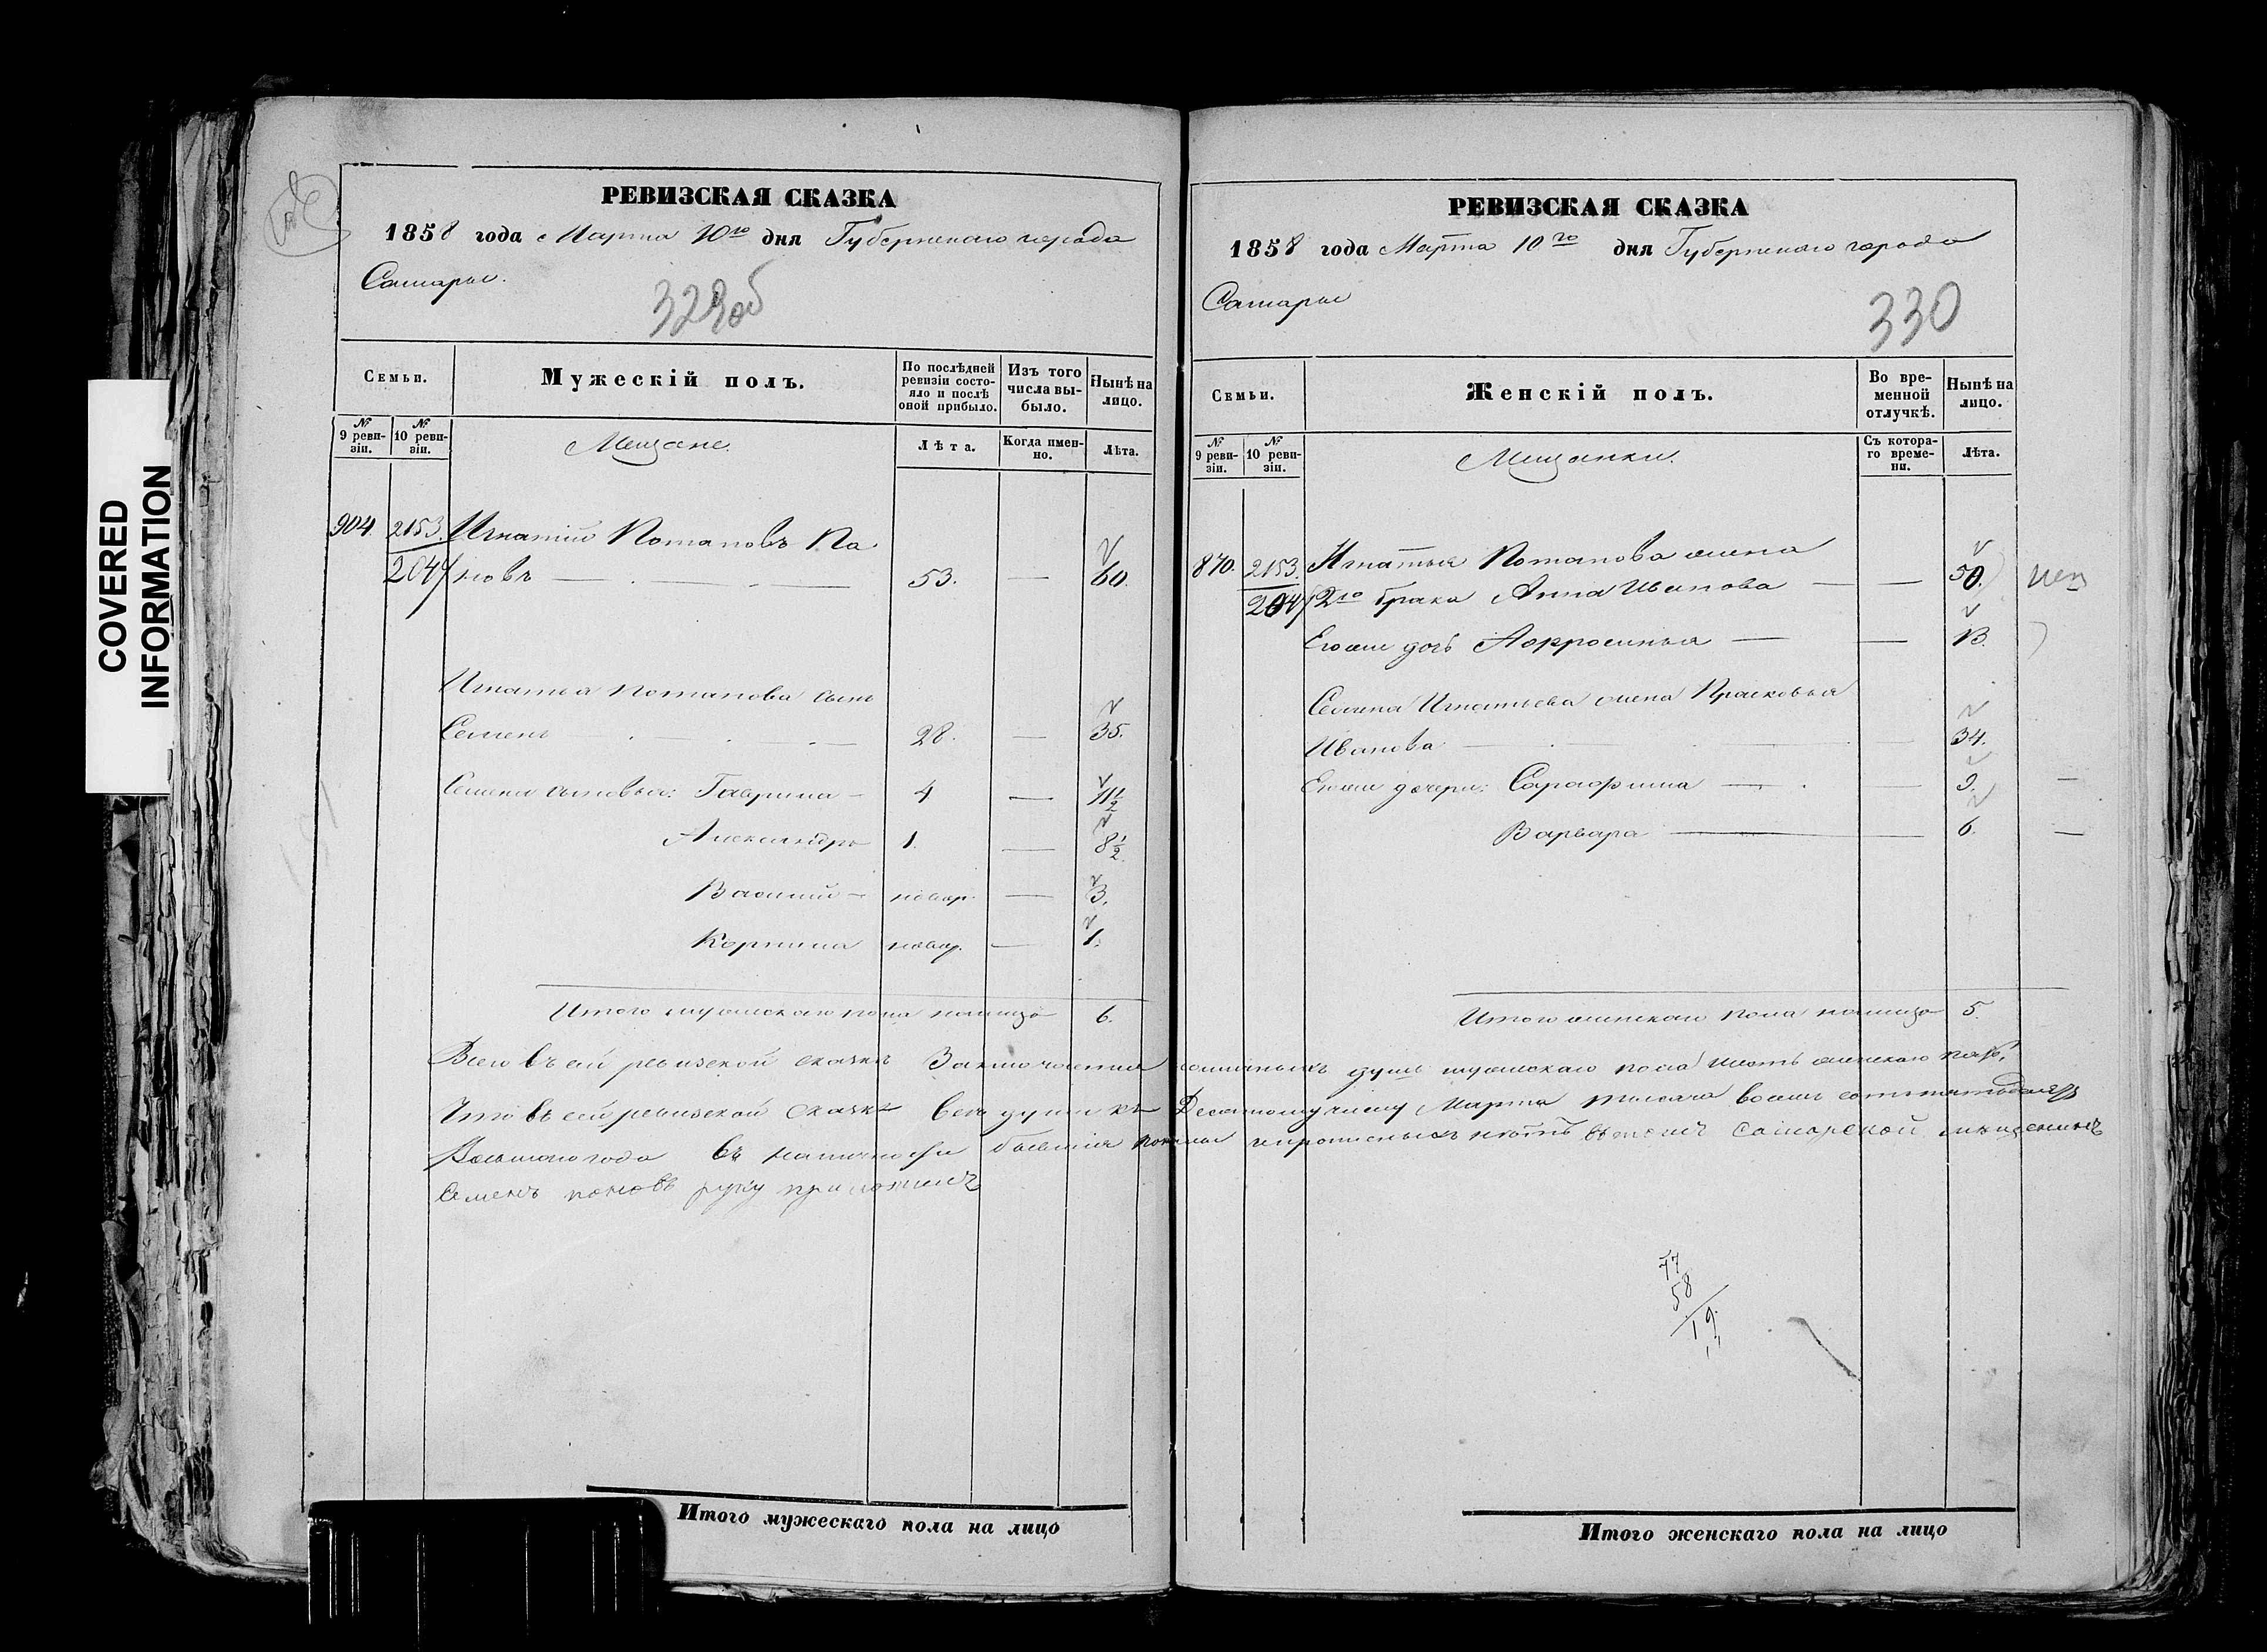 COVERED
INFORMATION
РЕВИЗСКАЯ СКАЗКА
1858 года Марта 10го дня Губернскаго города
Самары.
329об
Семьи.
Мужескій полъ.
По послѣдней ревизіи состояло и послѣ оной прибыло.
Изъ того числа выбыло.
Нынѣ на лицо.
№ 9 ревизіи.
№ 10 ревизіи.
Мещане.
Лѣта.
Когда именно.
Лѣта.
904. 2153. Игнатій Потаповъ Па
2047 новъ 53. — 60.
Игнатья Потапова сынъ
Семенъ 28. — 35.
Семена сыновья: Гаврила 4 — 11½
Александръ 1. — 8½.
Василий новор. — 3.
Корнила новор. — 1.
Итого мужескаго пола налицо 6.
РЕВИЗСКАЯ СКАЗКА
1858 года Марта 10го дня Губернскаго города
Самары
330
Семьи.
Женскій полъ.
Во временной отлучкѣ.
Нынѣ на лицо.
№ 9 ревизіи.
№ 10 ревизіи.
Мещанки.
Съ котораго времени.
Лѣта.
870. 2153. Игнатья Потапова жена
2047 2го брака Анна Иванова — 50.
Егоже дочь — 13.
Семена Игнатьева жена Прасковья
Иванова — 34.
Егоже дочери: — 9.
Варвара — 6.
Итого женскаго пола налицо 5.
Всего въ сей ревизской сказкѣ Заключается наличныхъ душъ мужескаго пола шесть женскаго пять,
Что въ сей ревизской Сказкѣ всѣ души къ Десятому числу Марта тысяча восемь сотъ пятьдесятъ
Восьмаго года въ наличности бывшія показаны и прописныхъ нѣтъ въ томъ Самарской мещенинъ
Семенъ пановъ руку приложилъ
77
58
19
Итого мужескаго пола на лицо
Итого женскаго пола на лицо